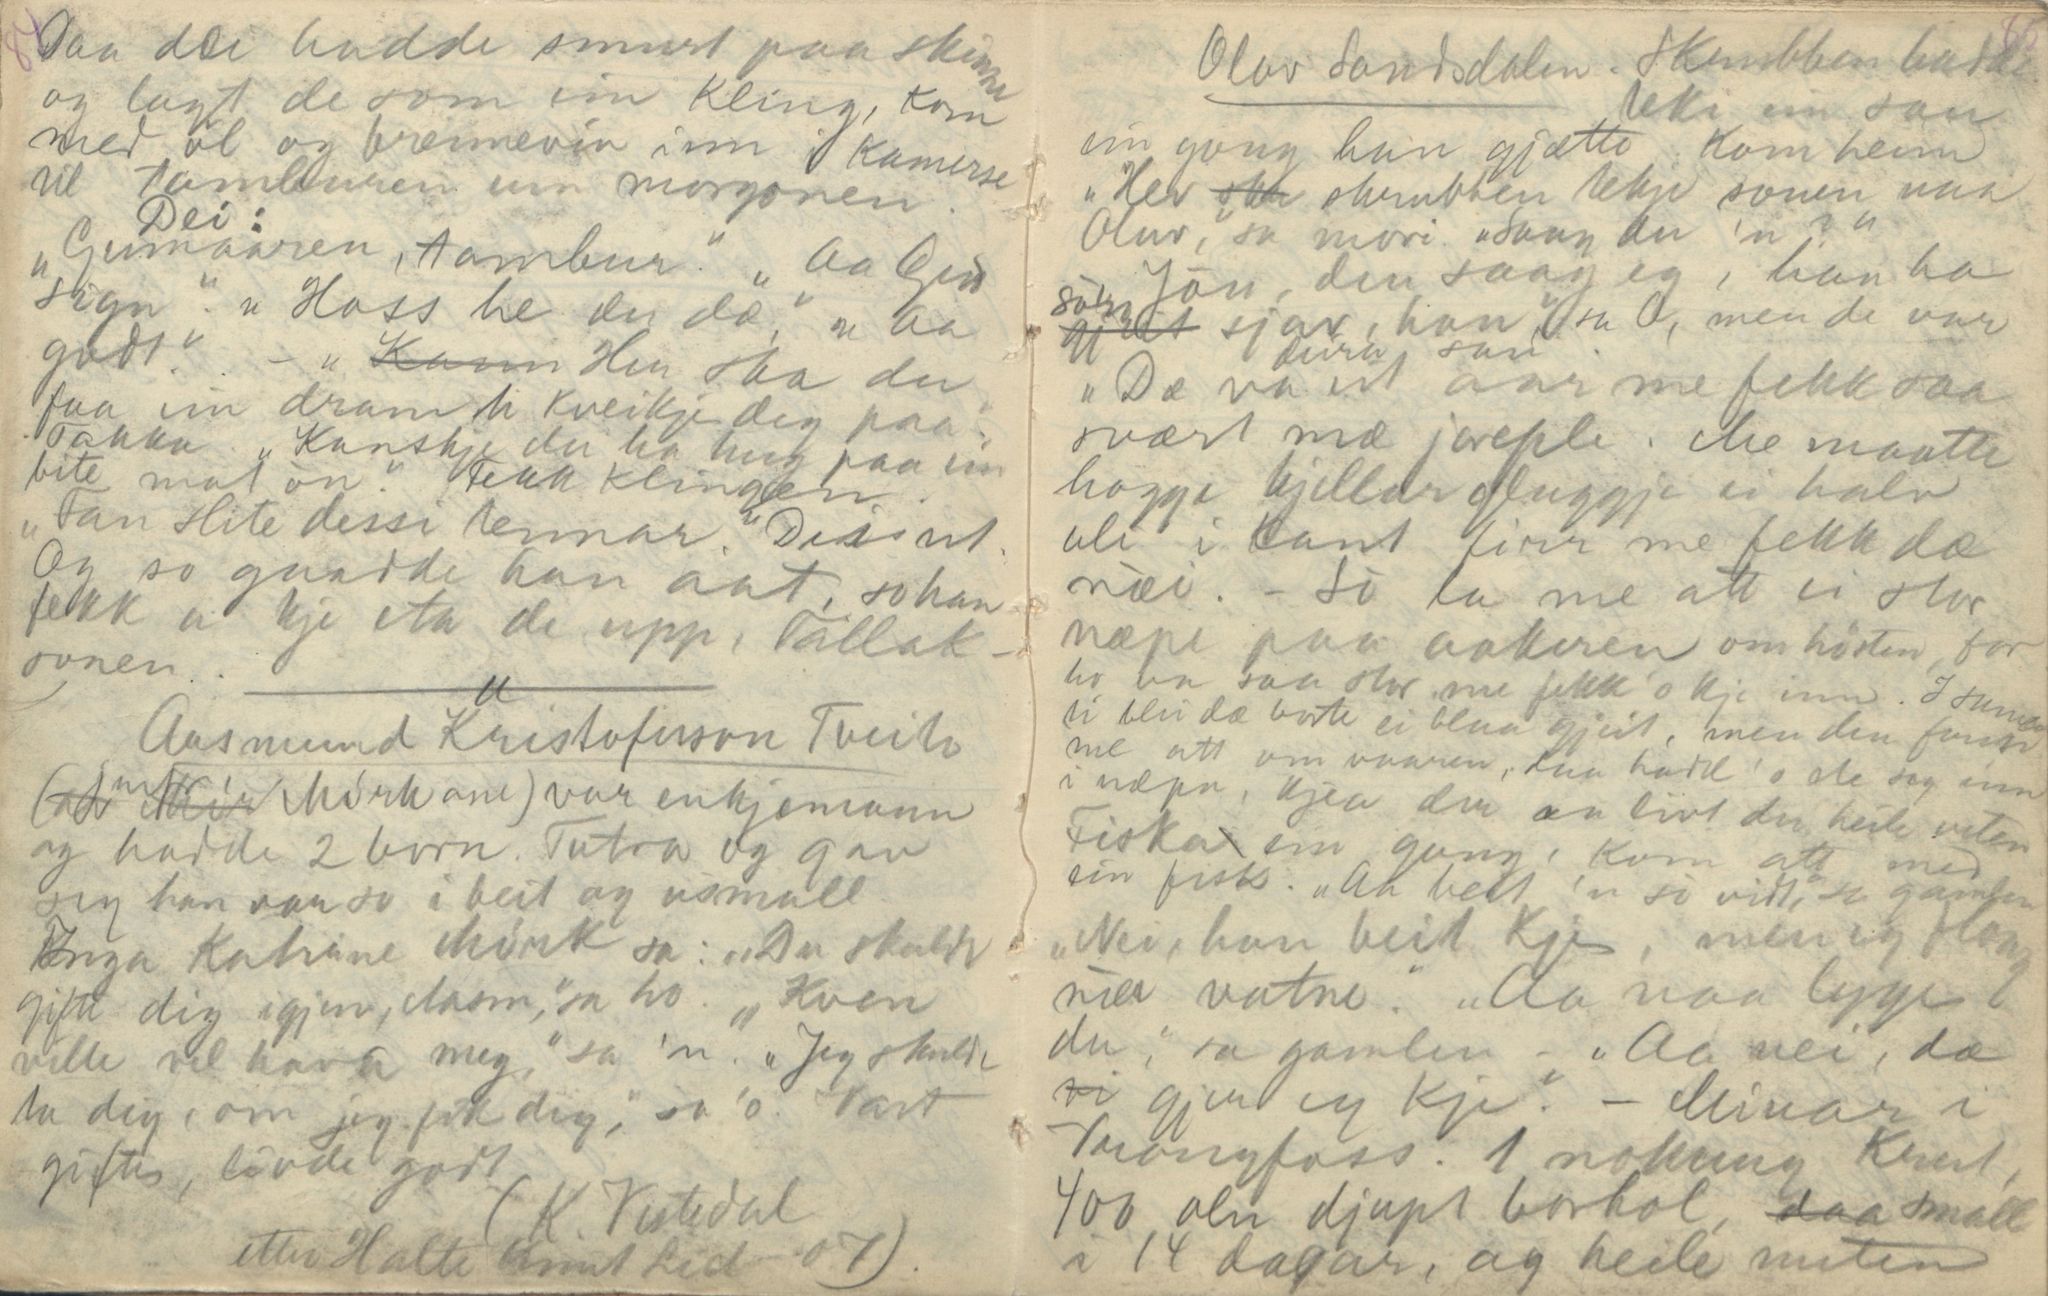 84
Daa dei hadde smurt paa skinne
og lagt de som ein kling, kom
med öl og brennevin inn i kamerse
til tambiuren um morgonen.
Dei:
"Gumaaren, tambur." "Aa Gud
sign". "Hoss he du dæ," "Aa
godt." - "Kann Her ska du
faa ein dram te kveikje deg paa."
Takka. "Kanskje du ha hug paa ein
bite mat ön." Fekk klingen.
"Fan slite dessi tennar." Dei ut.
Og so gnadde han aat, so han
fekk a kje eta de upp, Tallak-
sonen.
Aasmund Kristoferson Tveito
(Mörkane) var enkjemann
og hadde 2 born. Tutra og gav
seg han var so i beit og usmall.
Inga Katrine Mörk sa: "Du skulde
gifte dig igjen, Aasm," sa ho. "Kven
ville vel hava meg," sa 'n. "Jeg skulde
ta dig, om jeg fik dig," sa 'o. Vart
gifte, livde godt.
(K. Vistedal
etter Halte Knut Lid - 07).
85
Olav Sandsdalen. Skrubben hadde
teki ein sau
ein gong han gjætte. Kom heim
"Hev skrubben tekje sonen naa
Olav," sa mori. "Saag du 'n?"
"Jön, den saag eg, han ha
söre sjav, han," sa O, men de var
"Dæ va eit aar me fekk saa
svært mæ joreple. Me maatte
hogge kjellargluggje ei halv
ali i kant firr me fekk dæ
næi. - Sö la me att ei stor
næpe paa aakeren om hösten, for
ho va saa stor me fekk 'o kje inn. I same
ti blei dæ borte ei blaa gjeit, men den funn
me att om vaaren, daa hadd 'o ete seg inn
i næpa, kjea der aa livt der heile veten
Fiska ein gong, kom att med
ein fisk. "Aa beit 'n sö vidt," sa gamlen
"Nei, han beit kje, men eg slong
næi vatne." "Aa naa lyge
du," sa gamlen - "Aa nei, dæ
gjer eg kje". - Minar i
Trongfoss. 1 nokung krut,
400 aln djupt borhol, daa small
i 14 dagar, og heile nuten